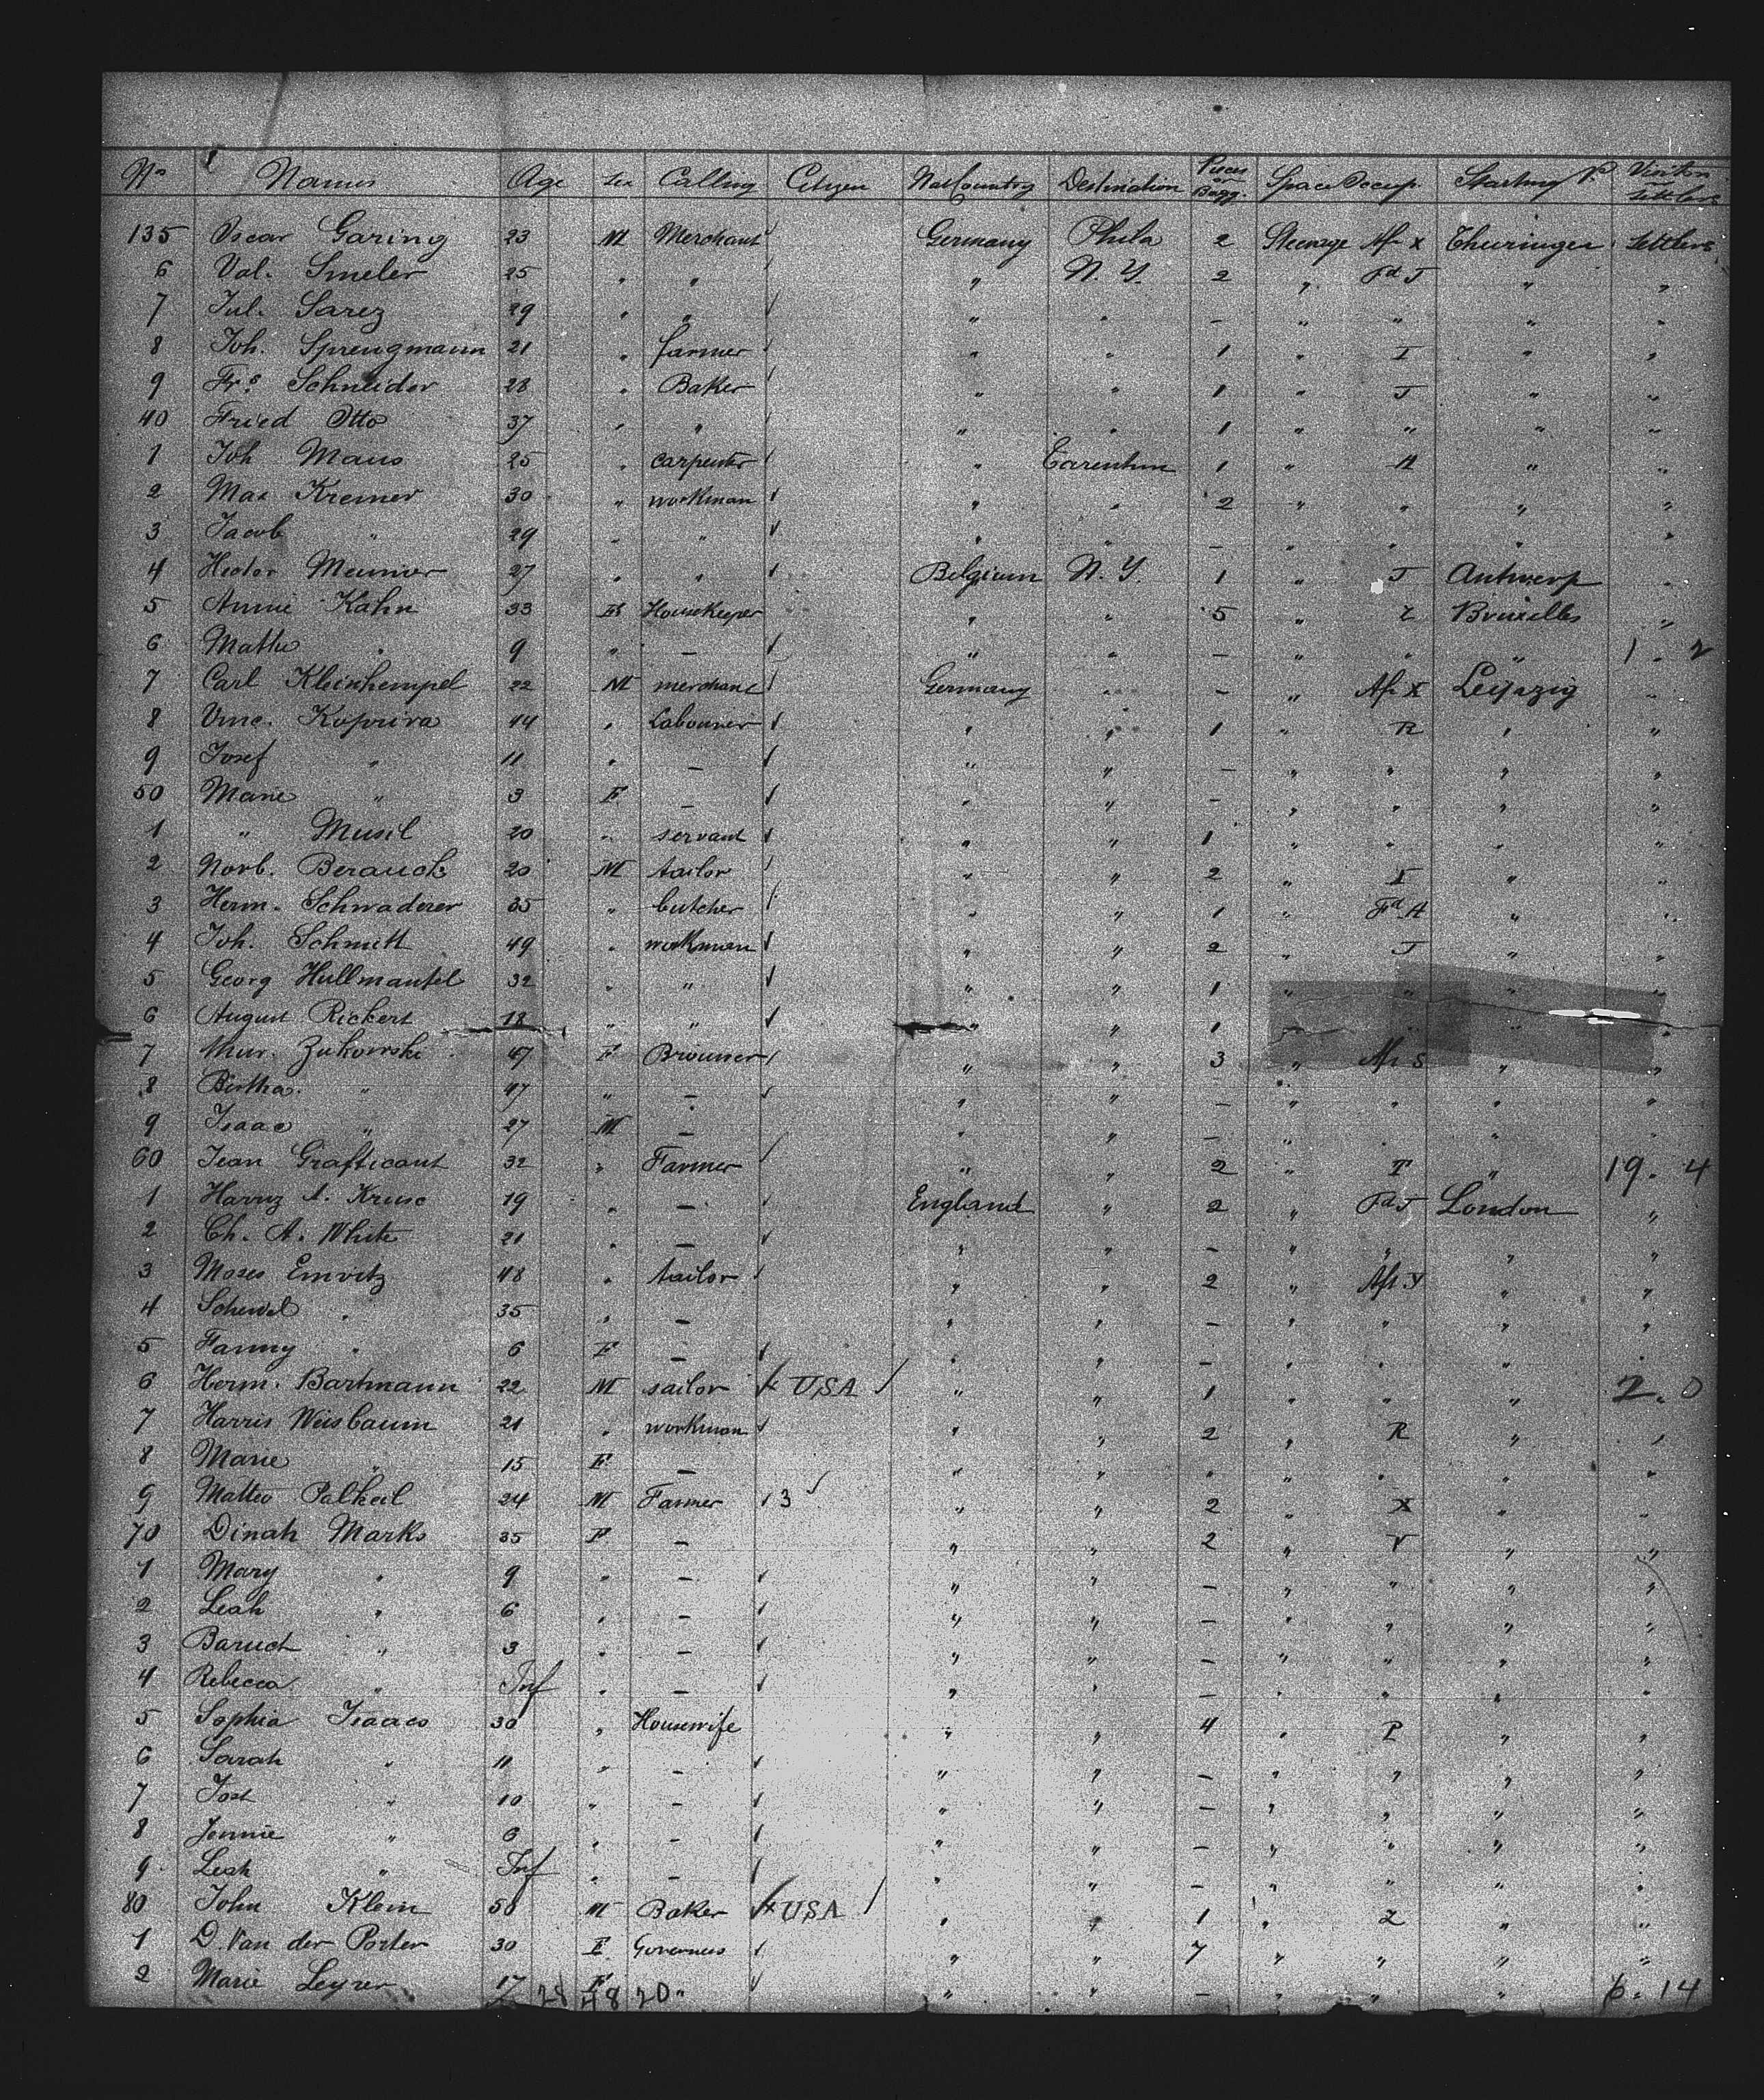 No Names Age Sex Calling Citizen Nat Country Destination Pieces Bagg. Space Occup. Starting P Visitors Settlers
135 Oscar Garing 23 M Merchant Germany Phila 2 Steerage Aft X Thuringen Settlers
6 Val. Smeler 25 " " " N.Y. 2 " Fd J " "
7 Jul. Sarez 29 " " " " - " " " "
8 Joh. Sprengmann 21 " farmer " " 1 " I " "
9 Frs Schneider 28 " Baker " " 1 " J " "
40 Fried Otto 37 " " " " 1 " " " "
1 Joh Maus 25 " carpenter " 1 " H " "
2 Max Kremer 30 " workman " " 2 " " " "
3 Jacob " 29 " " " " - " " " "
4 Hector Meunier 27 " " Belgium N.Y. 1 " J Antwerp "
5 Annie Kahn 33 F Housekeeper " " 5 " Z Bruxelles "
6 Mathe " 9 " - " " - " " " 1 . 2
7 Carl Kleinhempel 22 M merchant Germany " - " Aft X Leipzig "
8 Vinc. Kopriva 44 " Labourer " " 1 " R " "
9 Josef " 11 " - " " - " " " "
50 Marie " 3 F - " " - " " " "
1 " Musil 20 " servant " " 1 " " " "
2 Norb. Berauck 20 M tailor " " 2 " I " "
3 Herm. Schwaderer 35 " butcher " " 1 " Fd H " "
4 Joh. Schmitt 49 " workman " " 2 " J " "
5 Georg Hullmantel 32 " " " " 1 " " " "
6 August Rickert 18 " " " " 1 " " " "
7 Zukowski 47 F " " 3 " Aft S " "
8 Bertha " 47 " - " " - " " " "
9 Isaac " 27 M - " " - " " " "
60 Jean Grafticaut 32 " Farmer " " 2 " T " 19. 4
1 Harry A. Kruse 19 " - England " 2 " Fd J London "
2 Ch. A. White 21 " - " " - " " " "
3 Moses Emvitz 48 " tailor " " 2 " Aft Y " "
4 Schewel " 35 " - " " - " " " "
5 Fanny " 6 F - " " - " " " "
6 Herm. Bartmann 22 M sailor USA " " 1 " " " 2. 0
7 Harris Weisbaum 21 " workman " " 2 " R " "
8 Marie " 15 F - " " " " " " "
9 Matteo Palheil 24 M Farmer 3 " " 2 " X " "
70 Dinah Marks 35 F - " " 2 " V " "
1 Mary " 9 " - " " - " " " "
2 Leah " 6 " - " " - " " " "
3 Baruch " 3 " - " " - " " " "
4 Rebecca " Inf " - " " - " " " "
5 Sophia Isaacs 30 " Housewife " " 4 " P " "
6 Sarah " 11 " - " " - " " " "
7 Jost " 10 " - " " - " " " "
8 Jennie " 6 " - " " - " " " "
9 Leah " Inf " - " " - " " " "
80 John Klein 50 M Baker USA " " 1 " Z " "
1 D. Van der Porter 30 F Governess " " 7 " " " "
2 Marie Leyrer 17 F " " " - " " "
28 48 20 6. 14